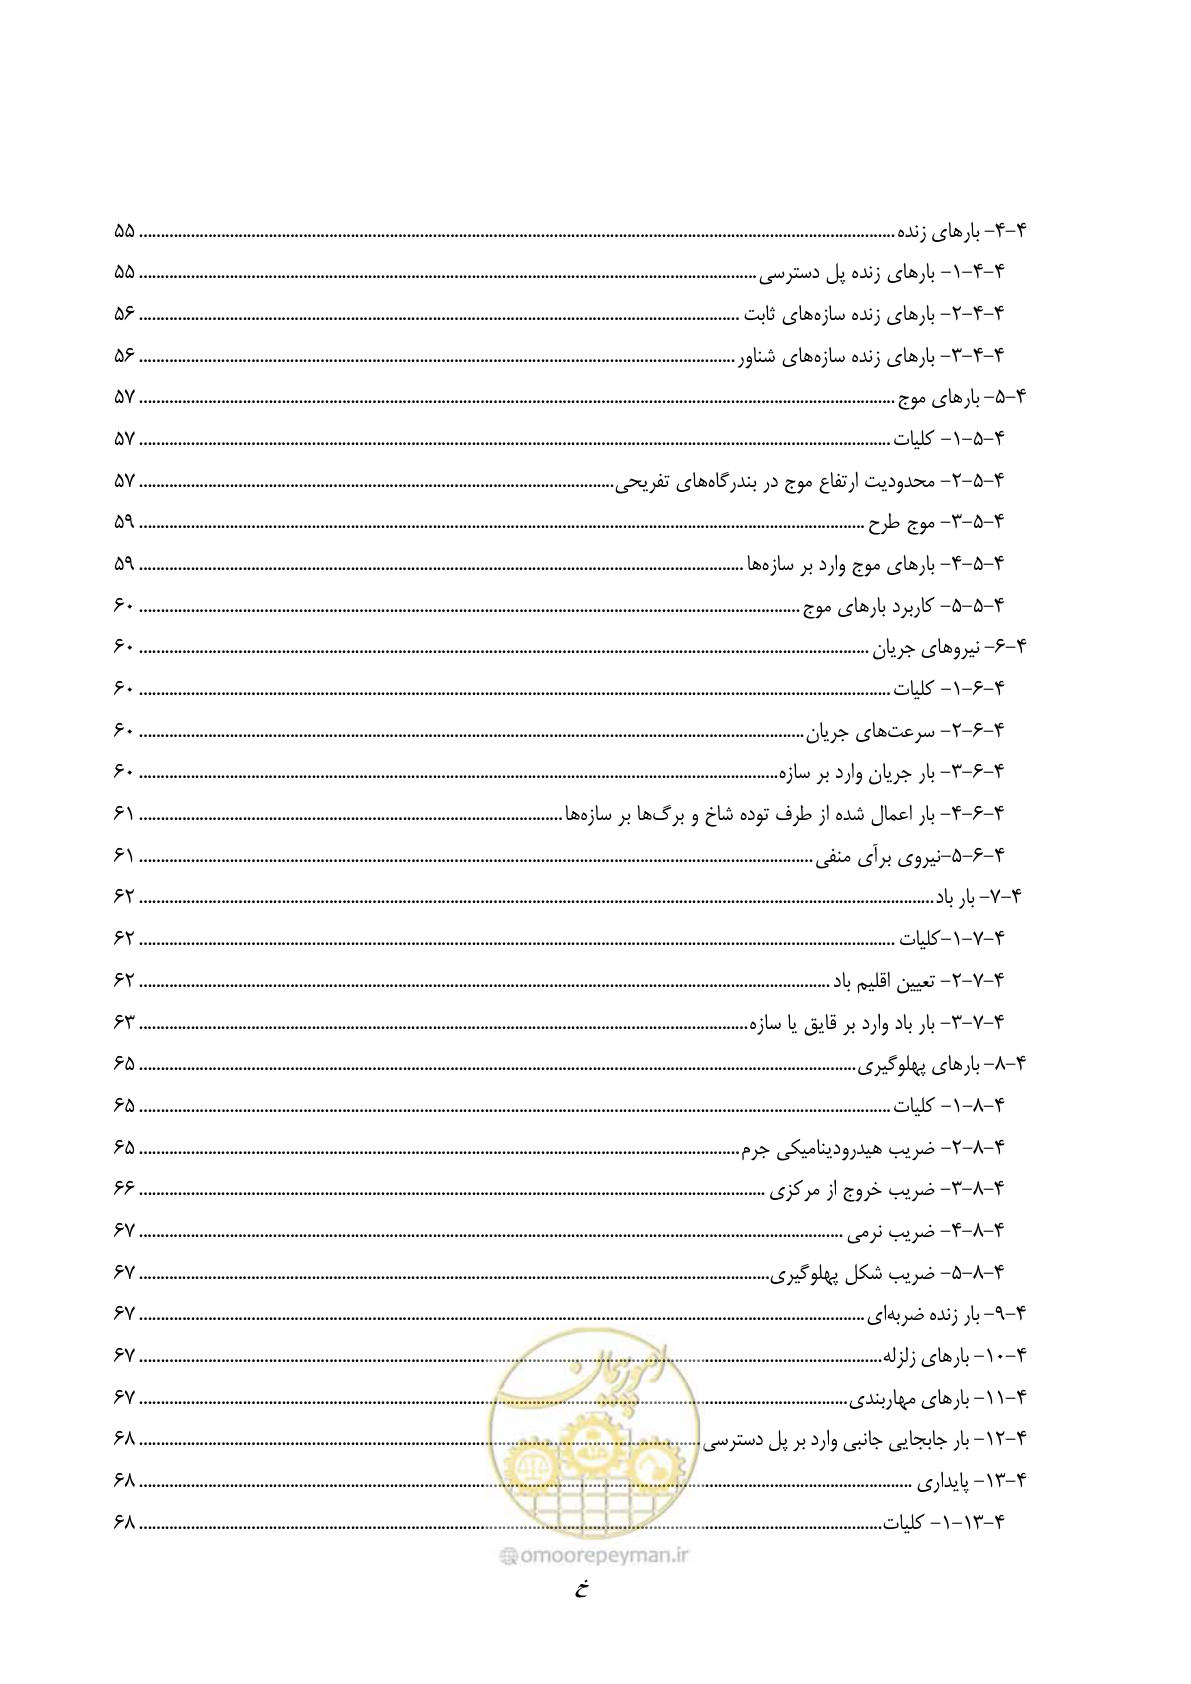 ۴-۴- بارهای زنده ............ ۵۵
۴-۴-۱- بارهای زنده پل دسترسی ............ ۵۵
۴-۴-۲- بارهای زنده سازه‌های ثابت ............ ۵۶
۴-۴-۳- بارهای زنده سازه‌های شناور ............ ۵۶
۴-۵- بارهای موج ............ ۵۷
۴-۵-۱- کلیات ............ ۵۷
۴-۵-۲- محدودیت ارتفاع موج در بندرگاه‌های تفریحی ............ ۵۷
۴-۵-۳- موج طرح ............ ۵۹
۴-۵-۴- بارهای موج وارد بر سازه‌ها ............ ۵۹
۴-۵-۵- کاربرد بارهای موج ............ ۶۰
۴-۶- نیروهای جریان ............ ۶۰
۴-۶-۱- کلیات ............ ۶۰
۴-۶-۲- سرعت‌های جریان ............ ۶۰
۴-۶-۳- بار جریان وارد بر سازه ............ ۶۰
۴-۶-۴- بار اعمال شده از طرف توده شاخ و برگ‌ها بر سازه‌ها ............ ۶۱
۴-۶-۵-نیروی برآی منفی ............ ۶۱
۴-۷- بار باد ............ ۶۲
۴-۷-۱-کلیات ............ ۶۲
۴-۷-۲- تعیین اقلیم باد ............ ۶۲
۴-۷-۳- بار باد وارد بر قایق یا سازه ............ ۶۳
۴-۸- بارهای پهلوگیری ............ ۶۵
۴-۸-۱- کلیات ............ ۶۵
۴-۸-۲- ضریب هیدرودینامیکی جرم ............ ۶۵
۴-۸-۳- ضریب خروج از مرکزی ............ ۶۶
۴-۸-۴- ضریب نرمی ............ ۶۷
۴-۸-۵- ضریب شکل پهلوگیری ............ ۶۷
۴-۹- بار زنده ضربه‌ای ............ ۶۷
۴-۱۰- بارهای زلزله ............ ۶۷
۴-۱۱- بارهای مهاربندی ............ ۶۷
۴-۱۲- بار جابجایی جانبی وارد بر پل دسترسی ............ ۶۸
۴-۱۳- پایداری ............ ۶۸
۴-۱۳-۱- کلیات ............ ۶۸
امور پیمان
omoorepeyman.ir
خ